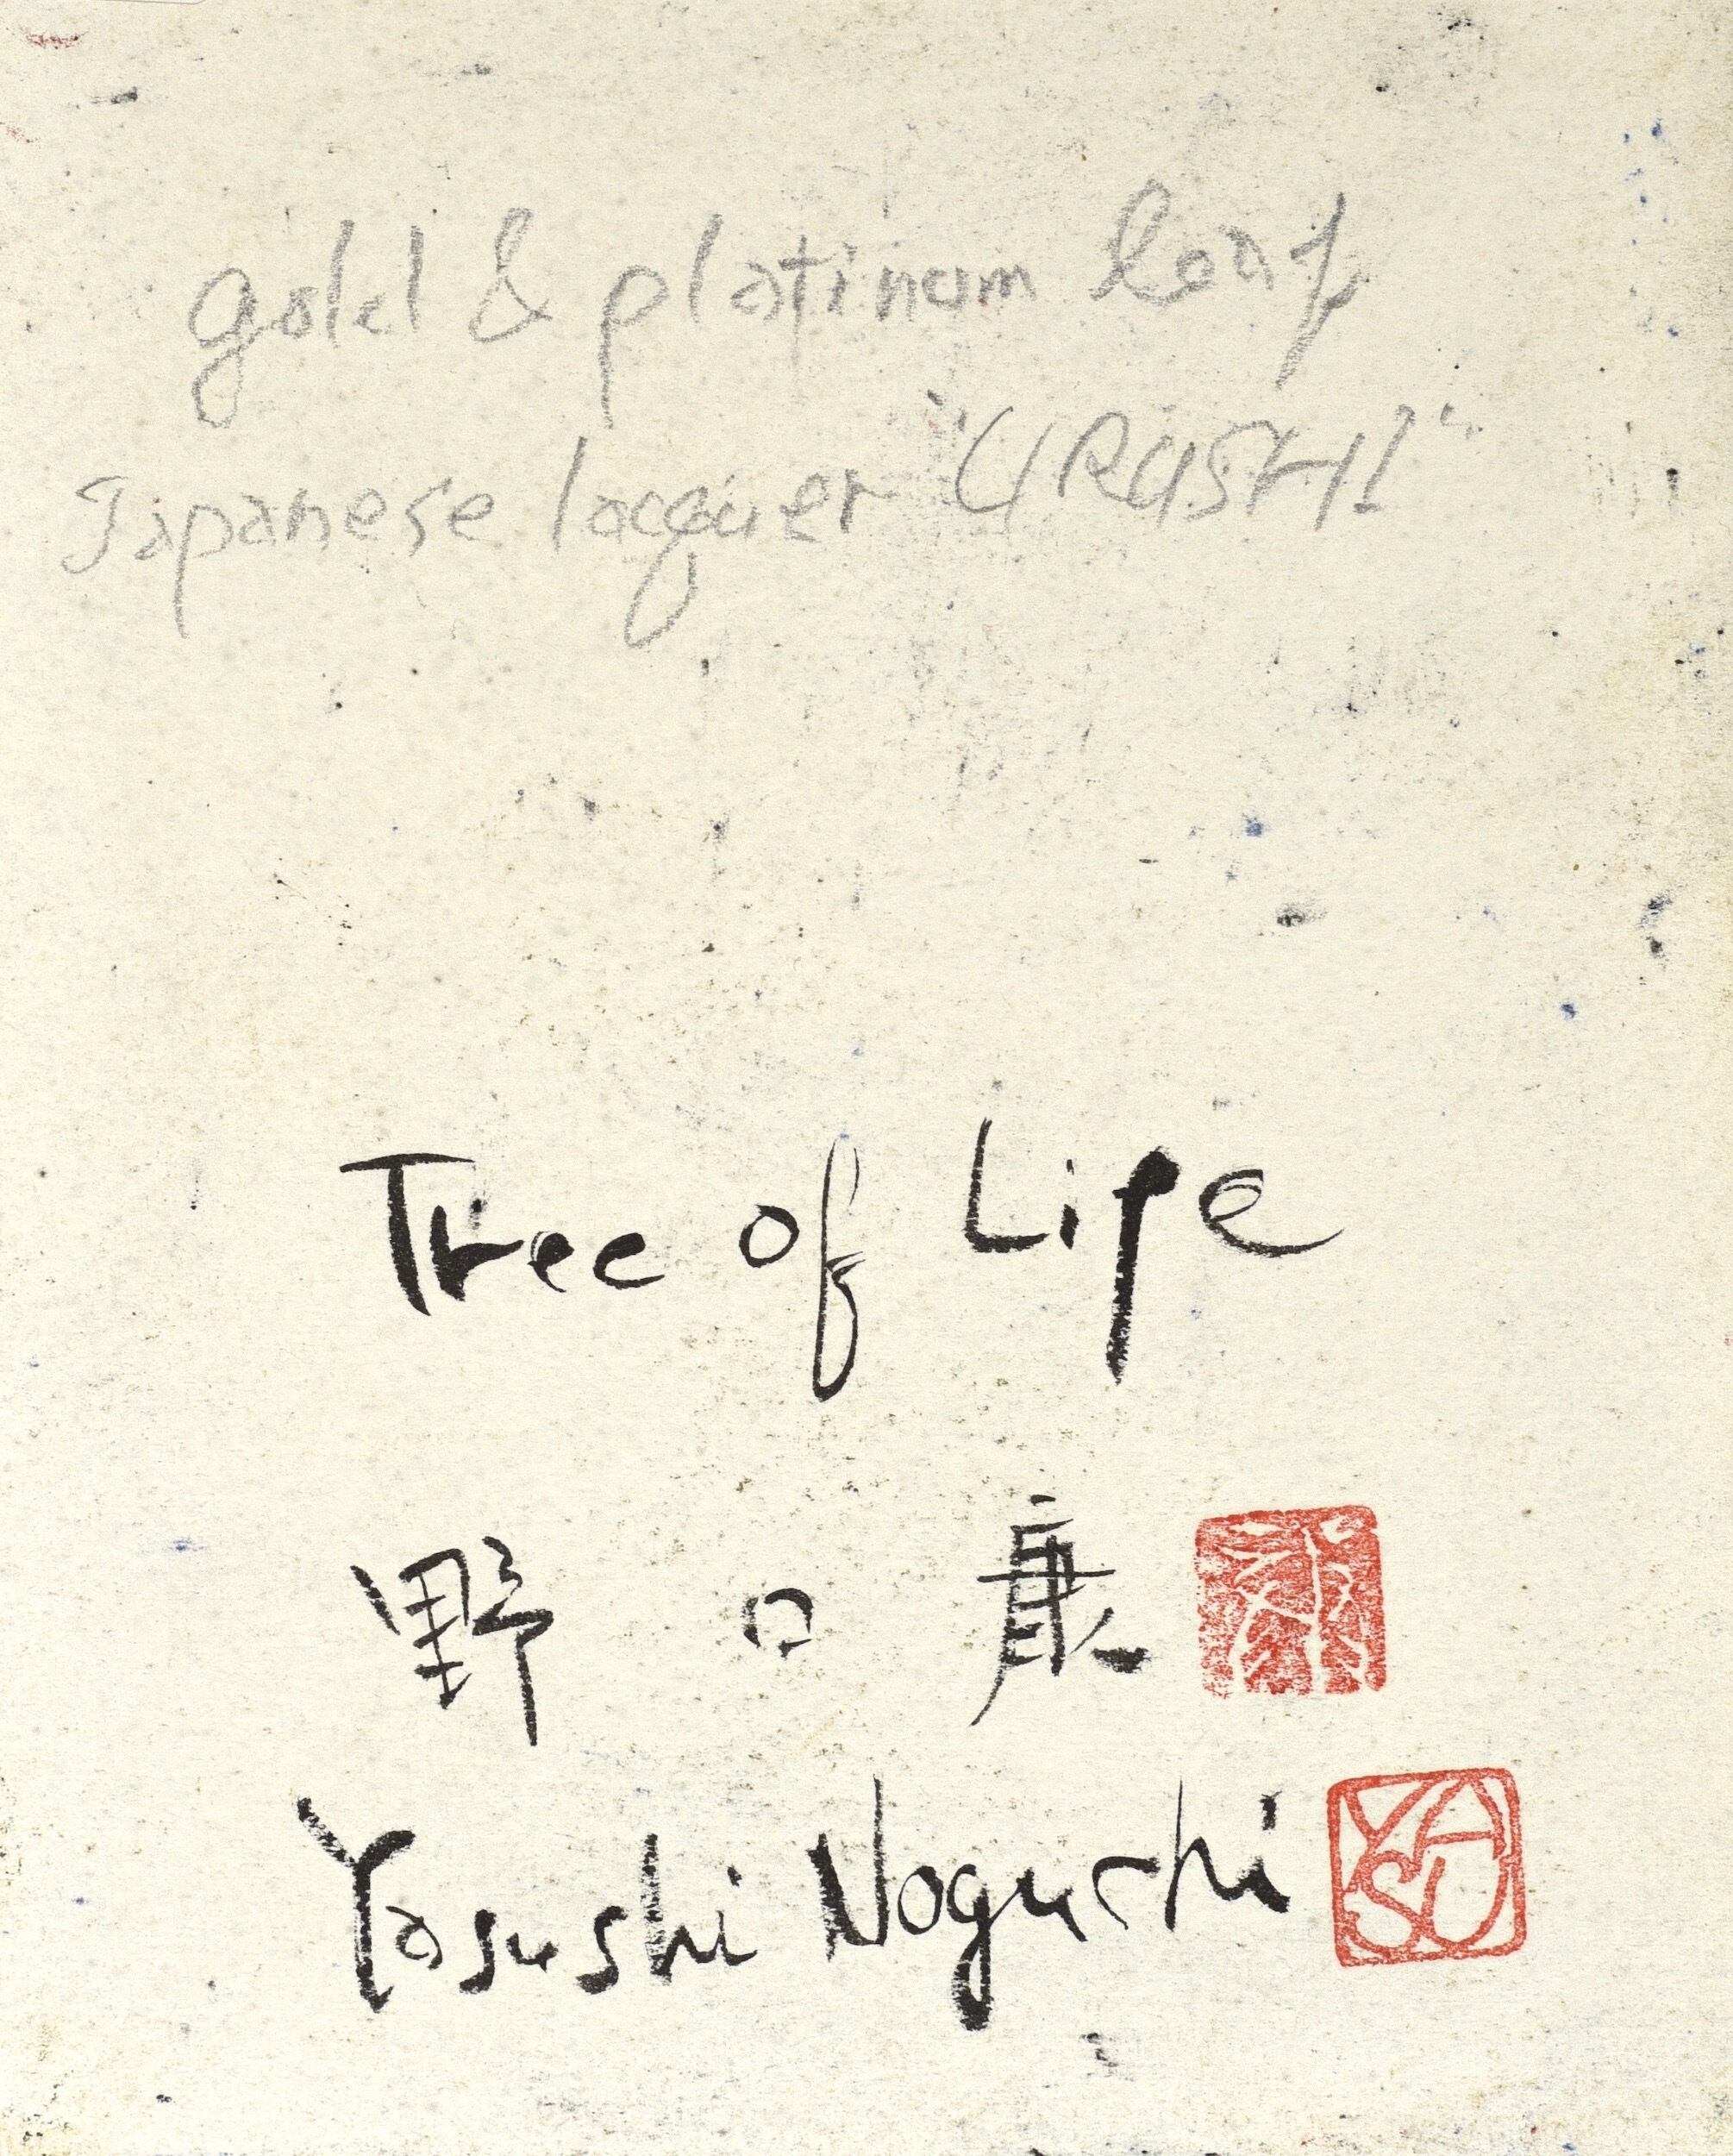 gold & platinum leaf
Japanese lacquer "URUSHI"
Tree of Life
野口康
Yasushi Noguchi
YASU